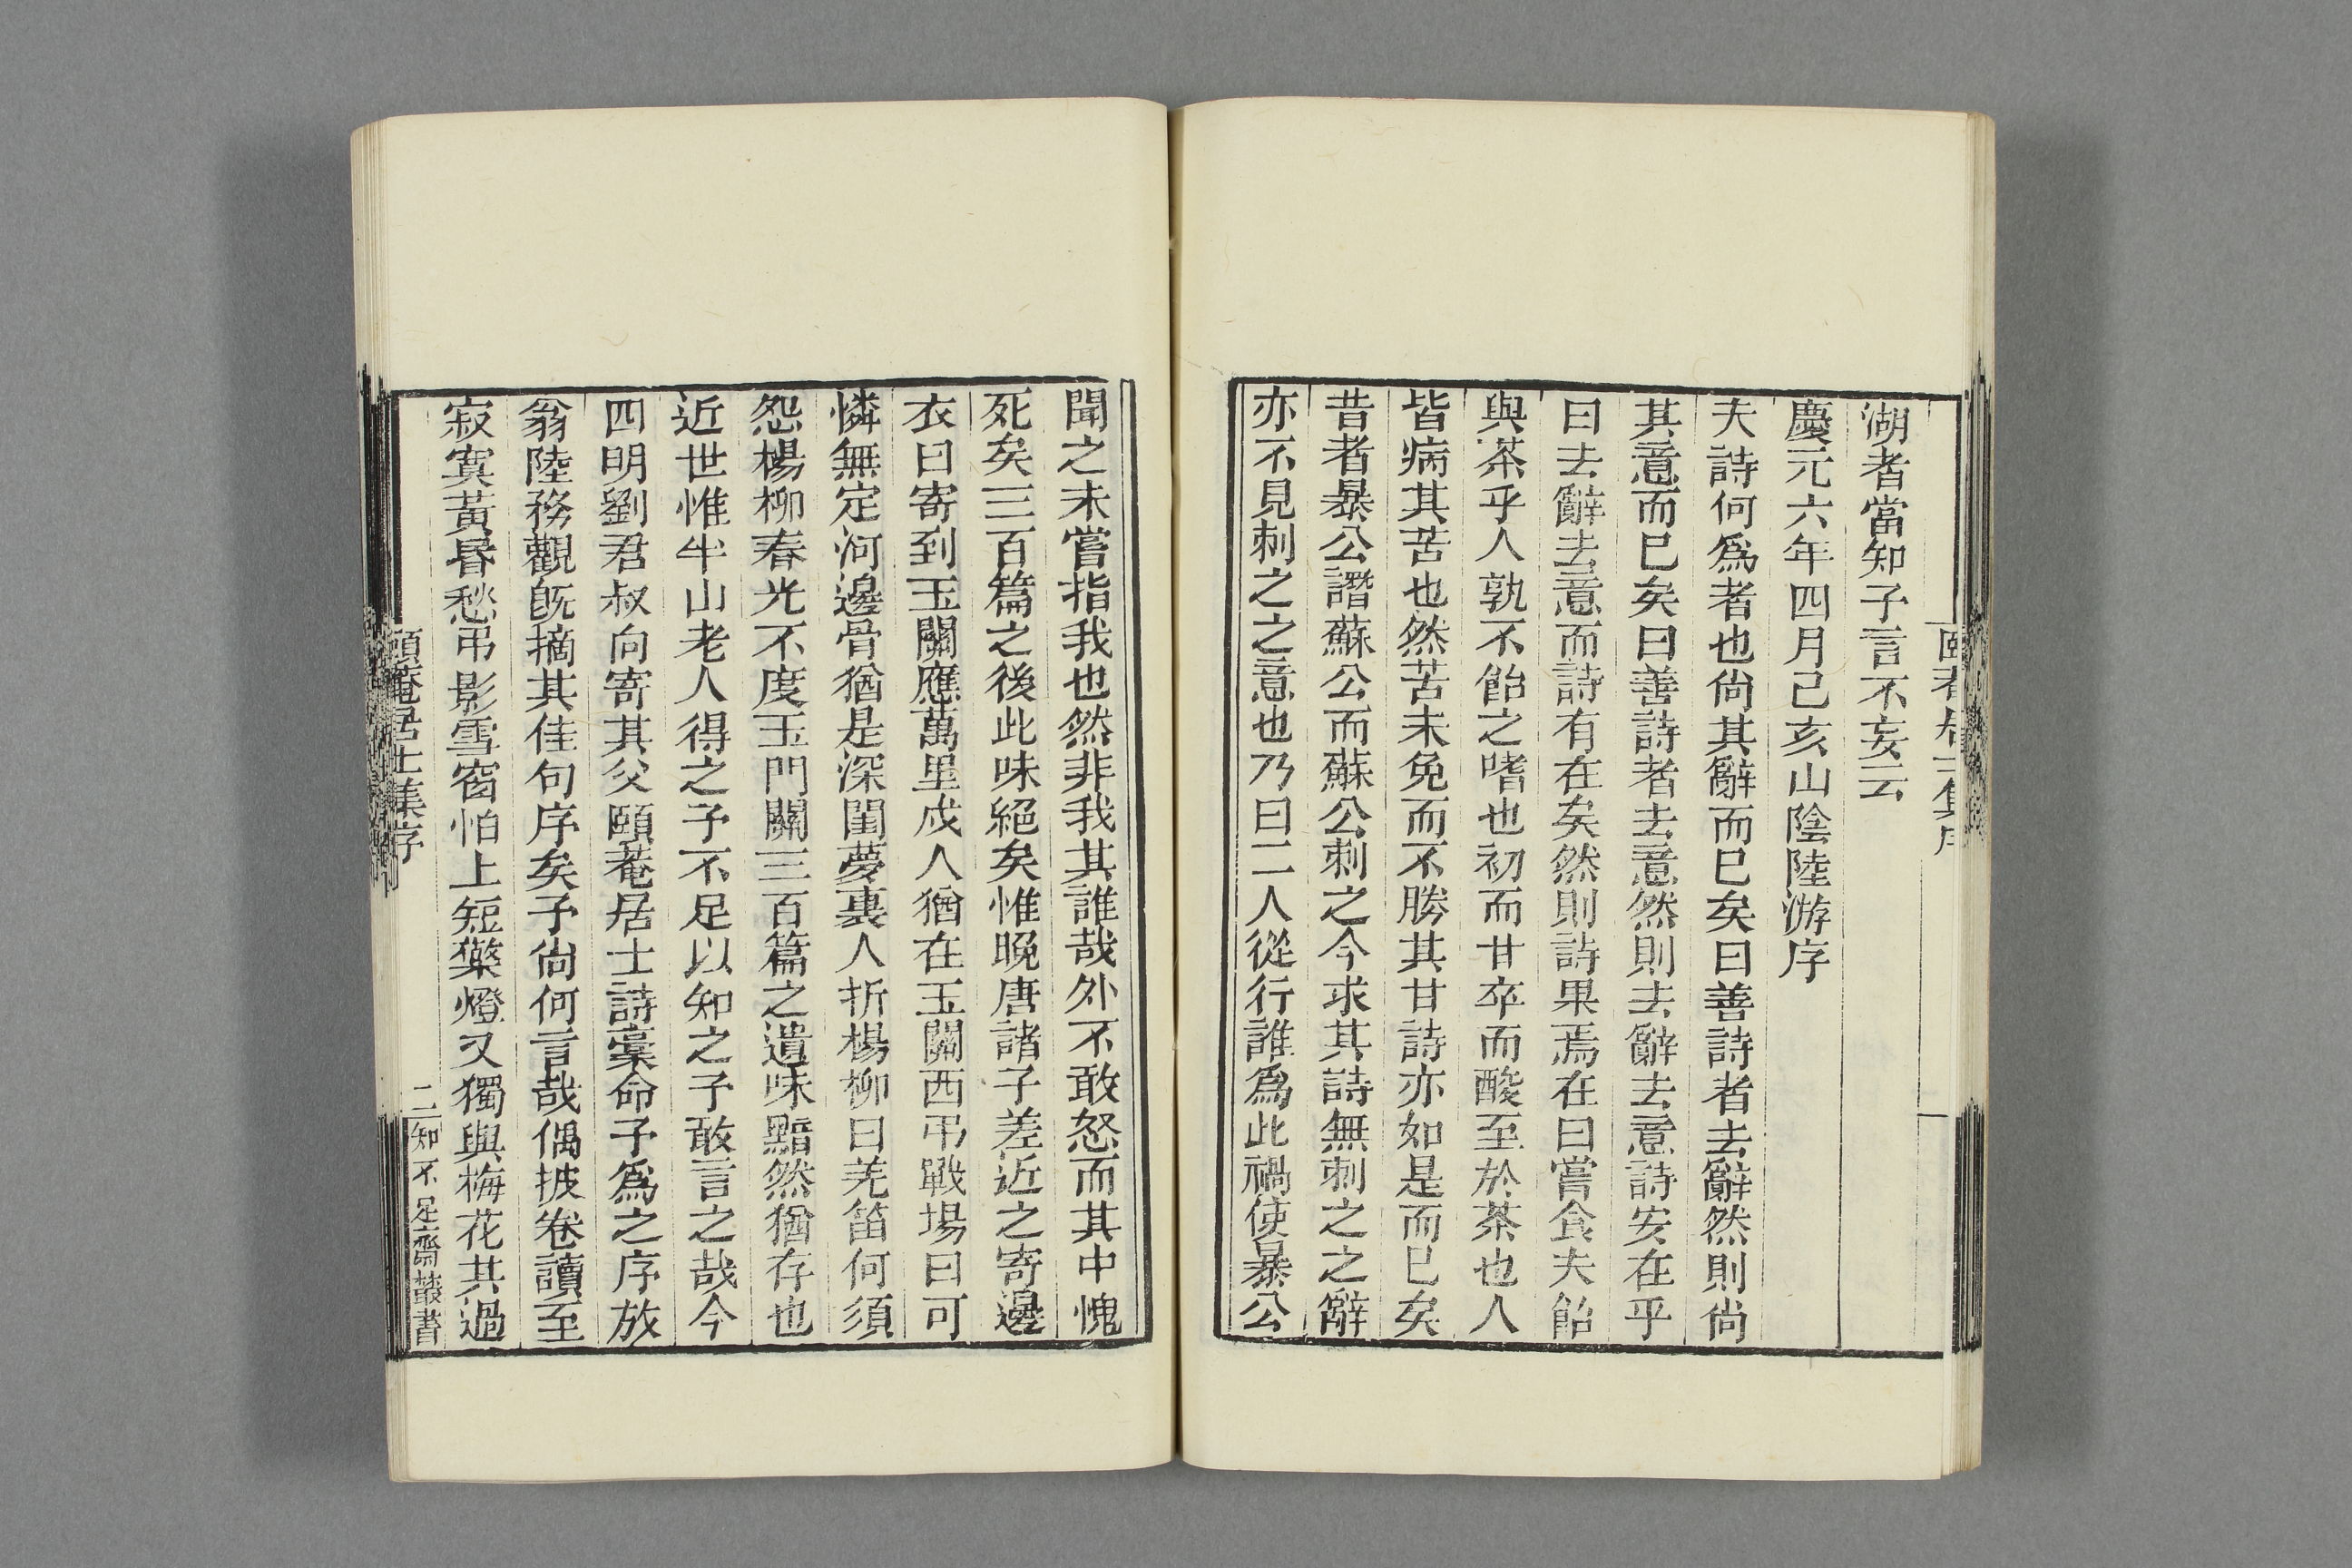 湖者當知予言不妄云
慶元六年四月己亥山陰陸游序
夫詩何爲者也尙其辭而已矣曰善詩者去辭然則尙
其意而已矣曰善詩者去意然則去辭去意詩安在乎
曰去辭去意而詩有在矣然則詩果焉在曰嘗食夫飴
與茶乎人孰不飴之嗜也初而甘卒而酸至於茶也人
皆病其苦也然苦未免而不勝其甘詩亦如是而已矣
昔者暴公譖蘇公而蘇公刺之今求其詩無刺之之辭
亦不見刺之之意也乃曰二人從行誰爲此禍使暴公
聞之未嘗指我也然非我其誰哉外不敢怒而其中愧
死矣三百篇之後此味絕矣惟晚唐諸子差近之寄邊
衣曰寄到玉關應萬里戍人猶在玉關西弔戰場曰可
憐無定河邊骨猶是深閨夢裏人折楊柳曰羌笛何須
怨楊柳春光不度玉門關三百篇之遺味黯然猶存也
近世惟半山老人得之予不足以知之予敢言之哉今
四明劉君叔向寄其父頤菴居士詩稾命予爲之序放
翁陸務觀旣摘其佳句序矣予尙何言哉偶披卷讀至
寂寞黃昏愁弔影雪窗怕上短檠燈又獨與梅花共過
頤菴居士集序
二
知不足齋叢書